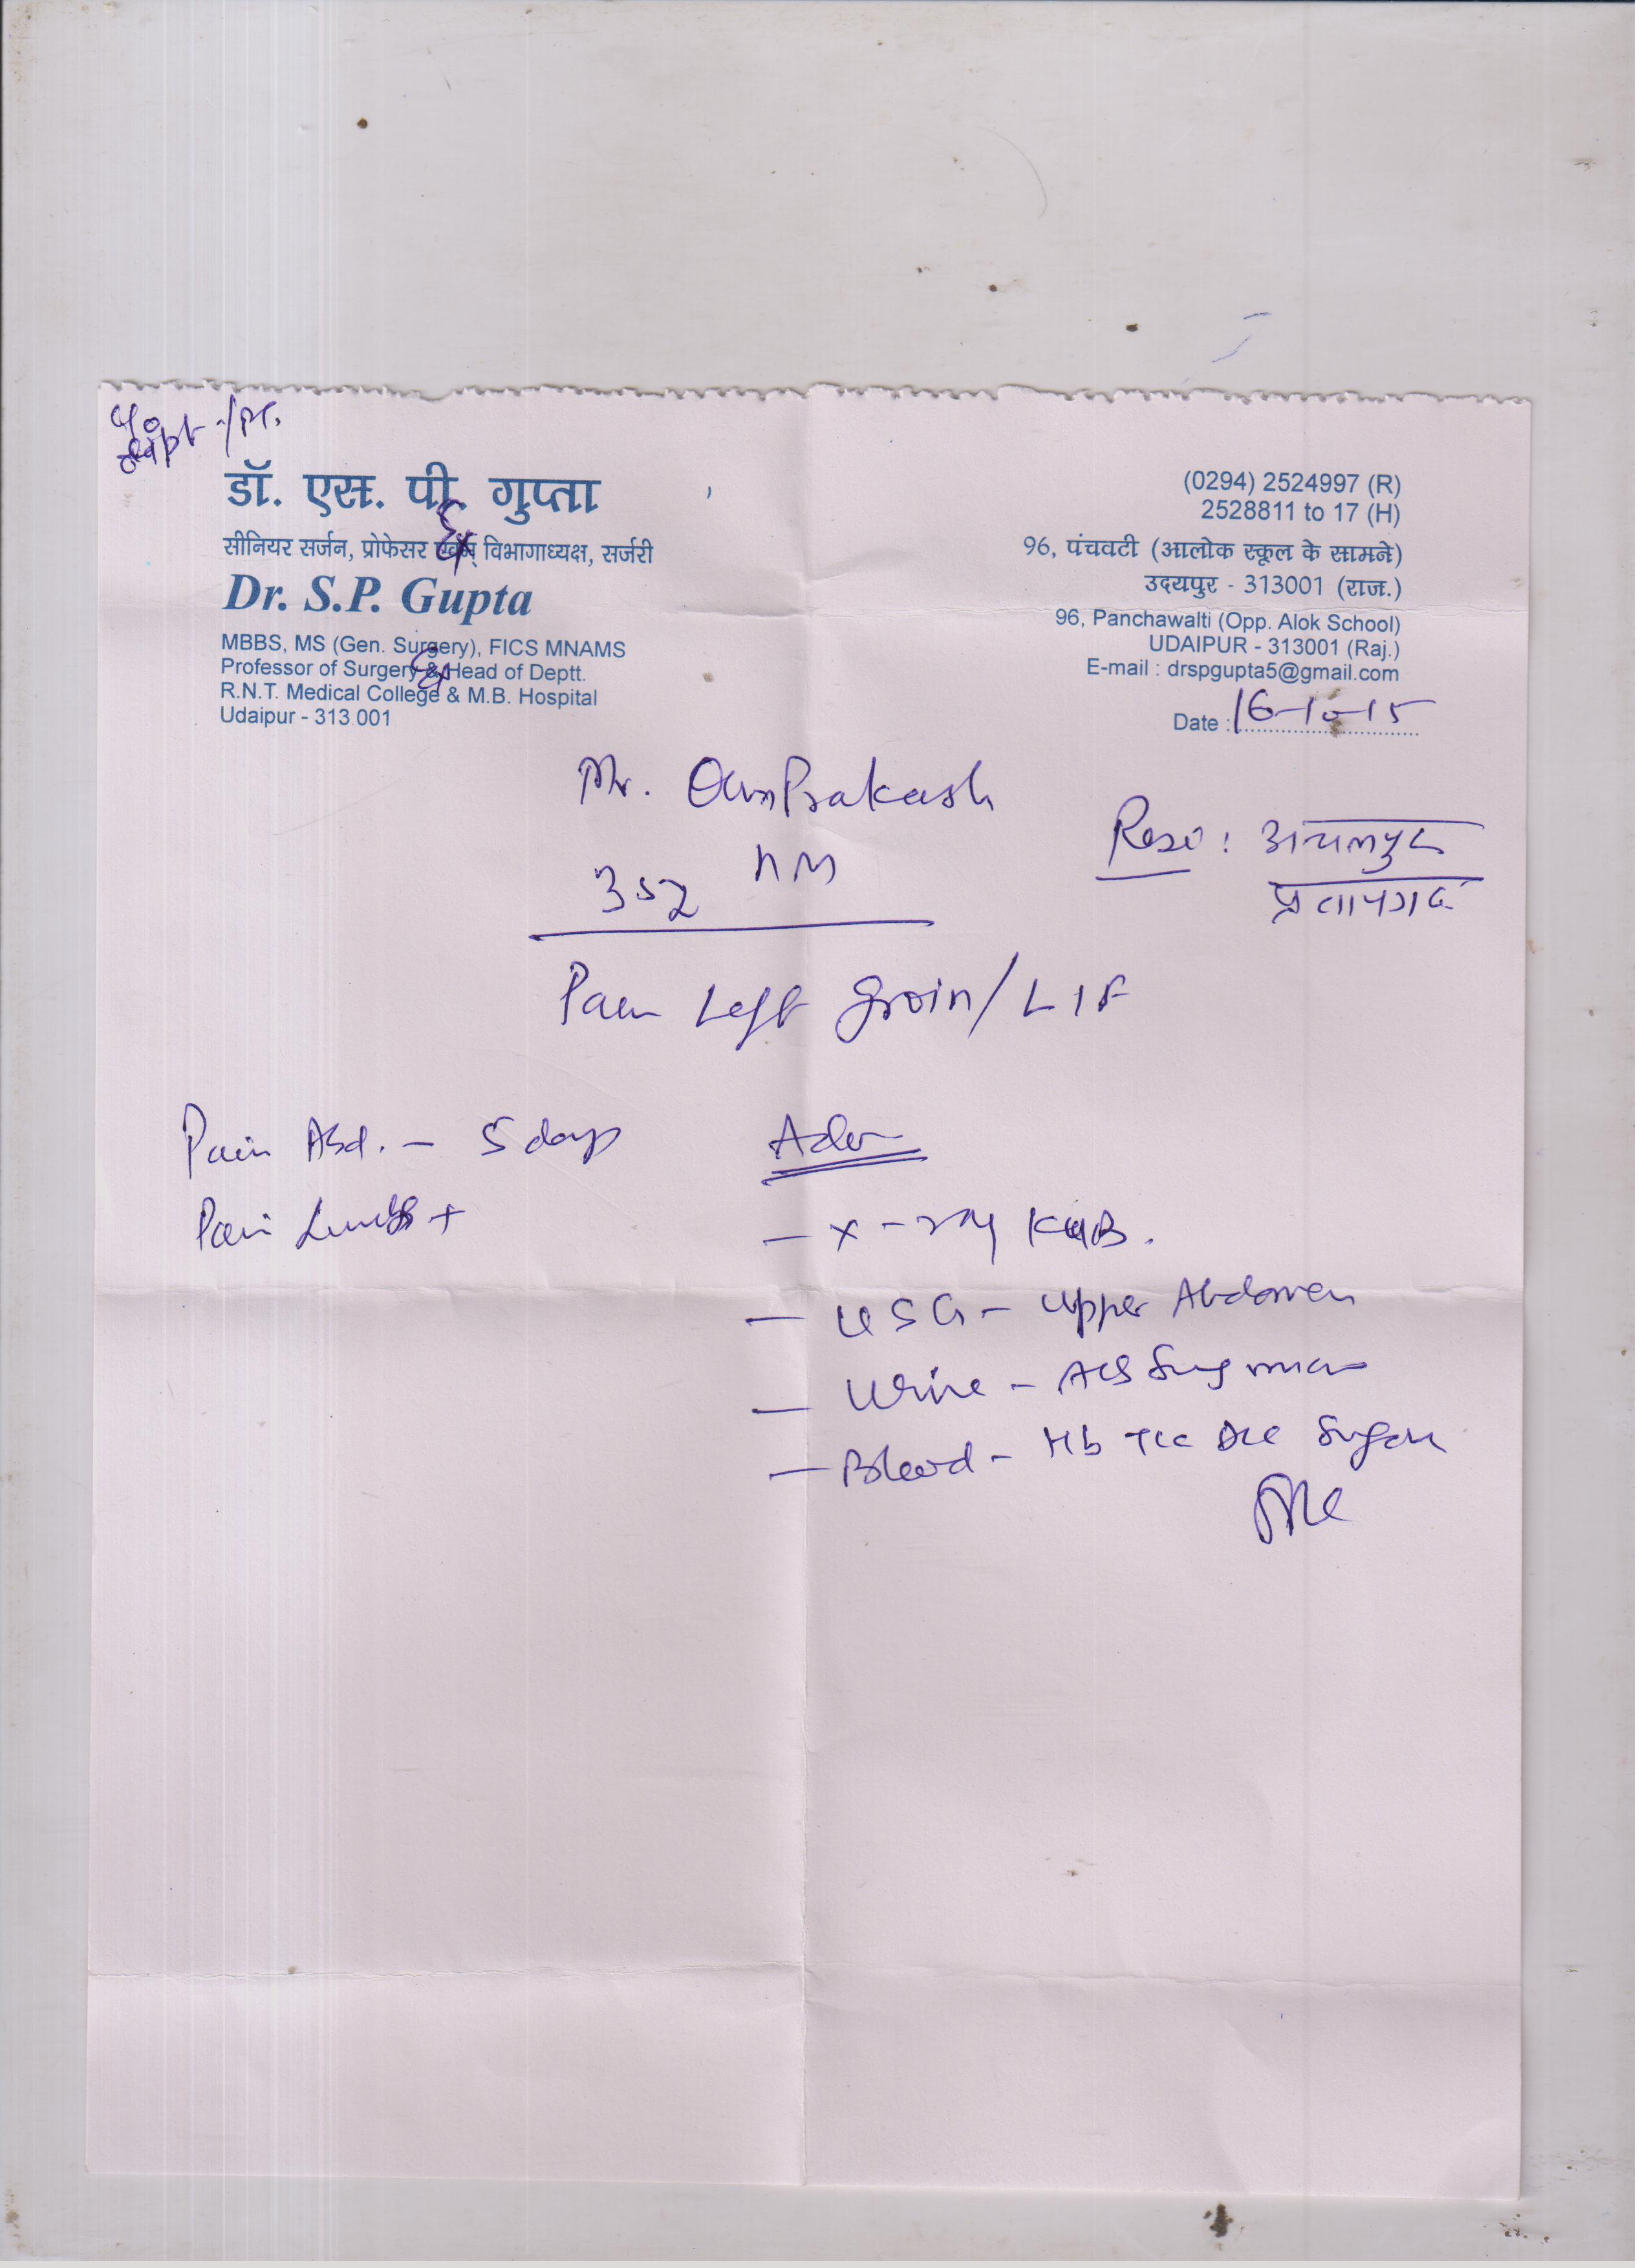 डॉ. एस. पी. गुप्ता
सीनियर सर्जन, प्रोफेसर एवम् विभागाध्यक्ष, सर्जरी
Dr. S.P. Gupta
MBBS, MS (Gen. Surgery), FICS MNAMS
Professor of Surgery & Head of Deptt.
R.N.T. Medical College & M.B. Hospital
Udaipur - 313 001
(0294) 2524997 (R)
2528811 to 17 (H)
96, पंचवटी (आलोक स्कूल के सामने)
उदयपुर - 313001 (राज.)
96, Panchawalti (Opp. Alok School)
UDAIPUR - 313001 (Raj.)
E-mail : drspgupta5@gmail.com
Date : 16-10-15
Mr. OmPrakash
Pain Left groin/LIF
प्रतापगढ
Pain Abd. - 5 days
Pain
Adv
- X-ray KUB.
- USG - Upper Abdomen
- Urine - Alb Sug micro
- Blood - Hb TLC DLC Sugar